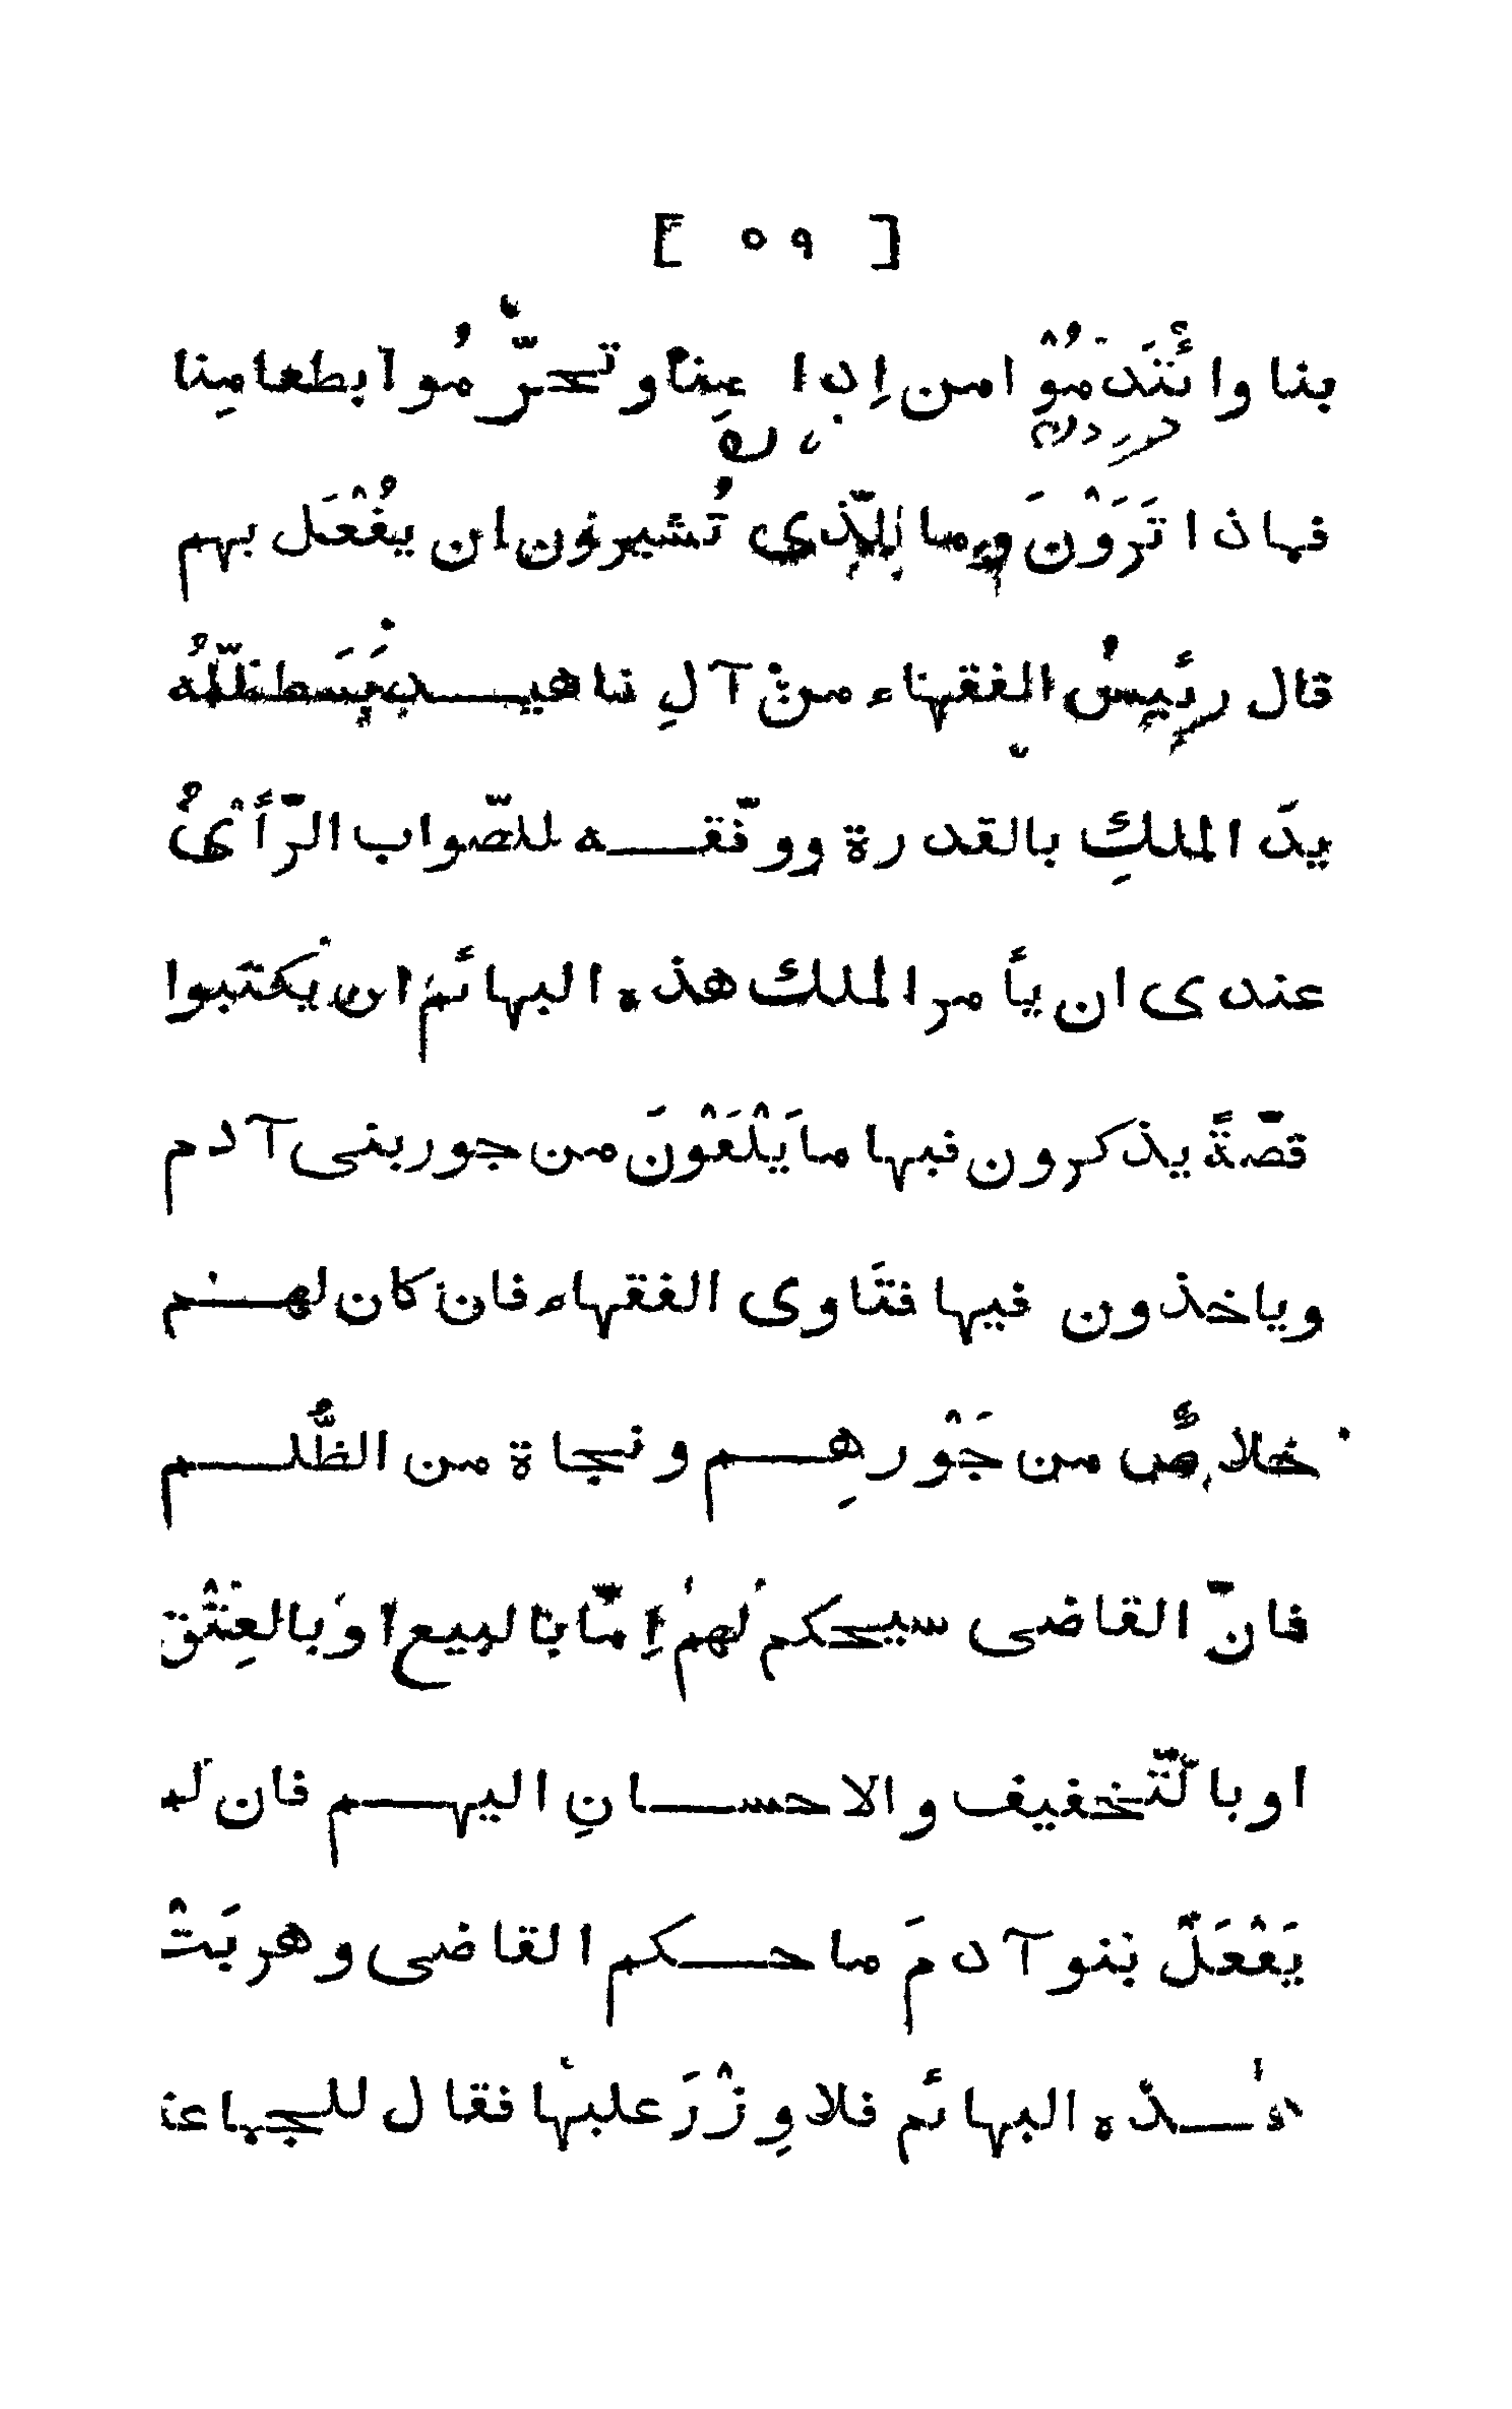 [ ٥٩ ]
بنا وائتَدَمُوْا من إدا منا وتحرّمُوا بطعامِنا
فماذا تَرَوْنَ وما الّذي تُشيرون ان يُفْعَل بهم
قال رئيسُ الفقهاء من آلِ ناهيد بَسَط اللّٰهُ
يدَ الملكِ بالقدرة ووفّقه للصّواب الرّأىُ
عندى ان يأمر الملك هذه البهائم ان يكتبوا
قصّةً يذكرون فيها ما يَلْقَوْنَ من جور بنى آدم
وياخذون فيها فتَاوى الفقهاء فان كان لهم
خلاصٌ من جَوْرهِم ونجاة من الظُّلم
فانّ القاضى سيحكم لهم إمّا بالبيع او بالعِتْق
او بالتّخفيف والاحسانِ اليهم فان لم
يَفْعَلْ بنو آدمَ ما حكم القاضى وهربَتْ
هذه البهائم فلا وِزْرَ عليها فقال للجماعة